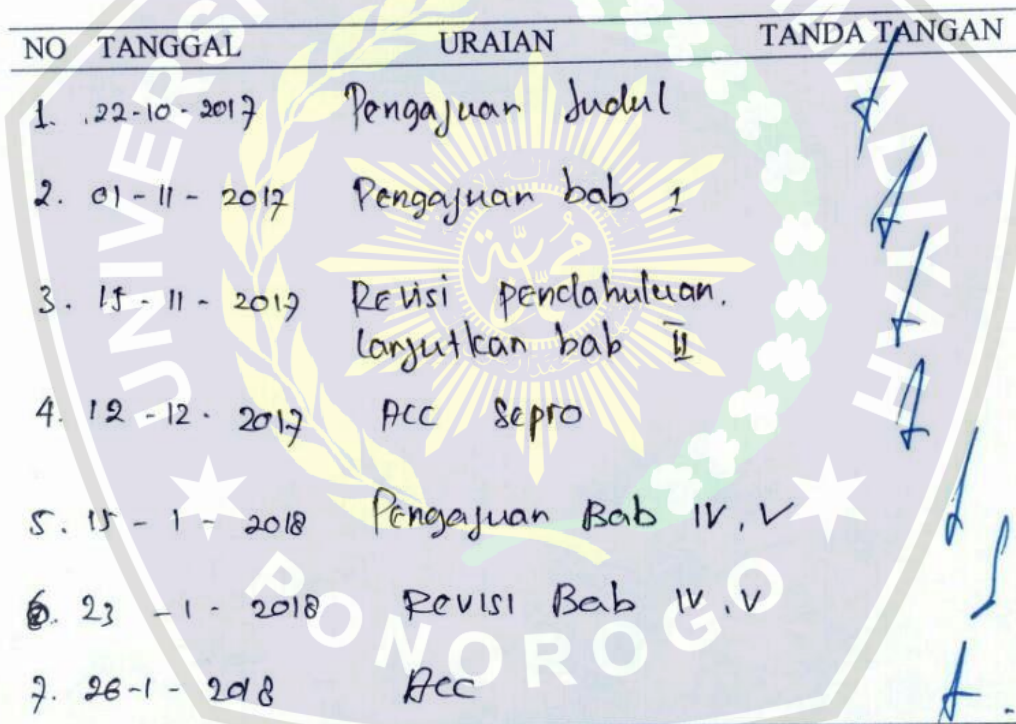 NO TANGGAL URAIAN TANDA TANGAN
1. 22-10-2017 Pengajuan Judul
2. 01-11-2017 Pengajuan bab 1
3. 15-11-2017 Revisi pendahuluan.
lanjutkan bab II
4. 12-12-2017 ACC Sepro
5. 15-1-2018 Pengajuan Bab IV, V
6. 23-1-2018 Revisi Bab IV, V
7. 26-1-2018 Acc
UNIVERSI
HADIYAH
PONOROGO